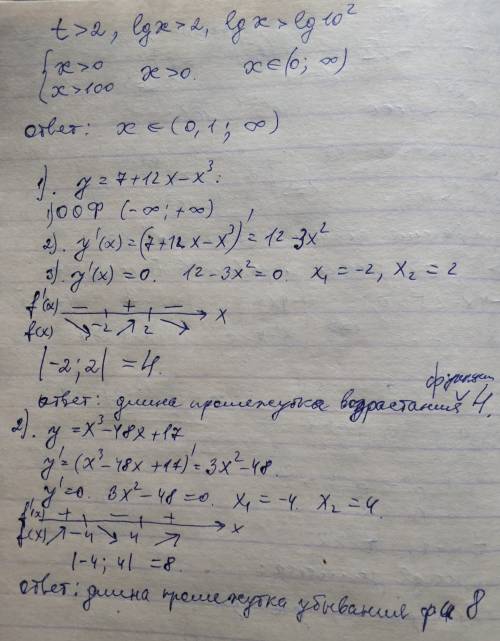 t>2, lgx>2, lgx>lg10²
{x>0 x>0. x∈(0; ∞)
x>100
ответ: x ∈ (0,1; ∞)
1). y = 7+12x-x³:
1) ООФ (-∞; +∞)
2). y'(x) = (7+12x-x³)' = 12-3x²
3). y'(x)=0. 12-3x²=0. x₁=-2, x₂=2
f'(x) - + - x
f(x) ↘ -2 ↗ 2 ↘
|-2; 2| = 4.
функции
ответ: длина промежутка возрастания 4.
2). y = x³-48x+17
y' = (x³-48x+17)' = 3x²-48.
y'=0. 3x²-48=0. x₁=-4. x₂=4.
f'(x) + - + x
f(x) ↗ -4 ↘ 4 ↗
|-4; 4| = 8.
ответ: длина промежутка убывания ф-и 8